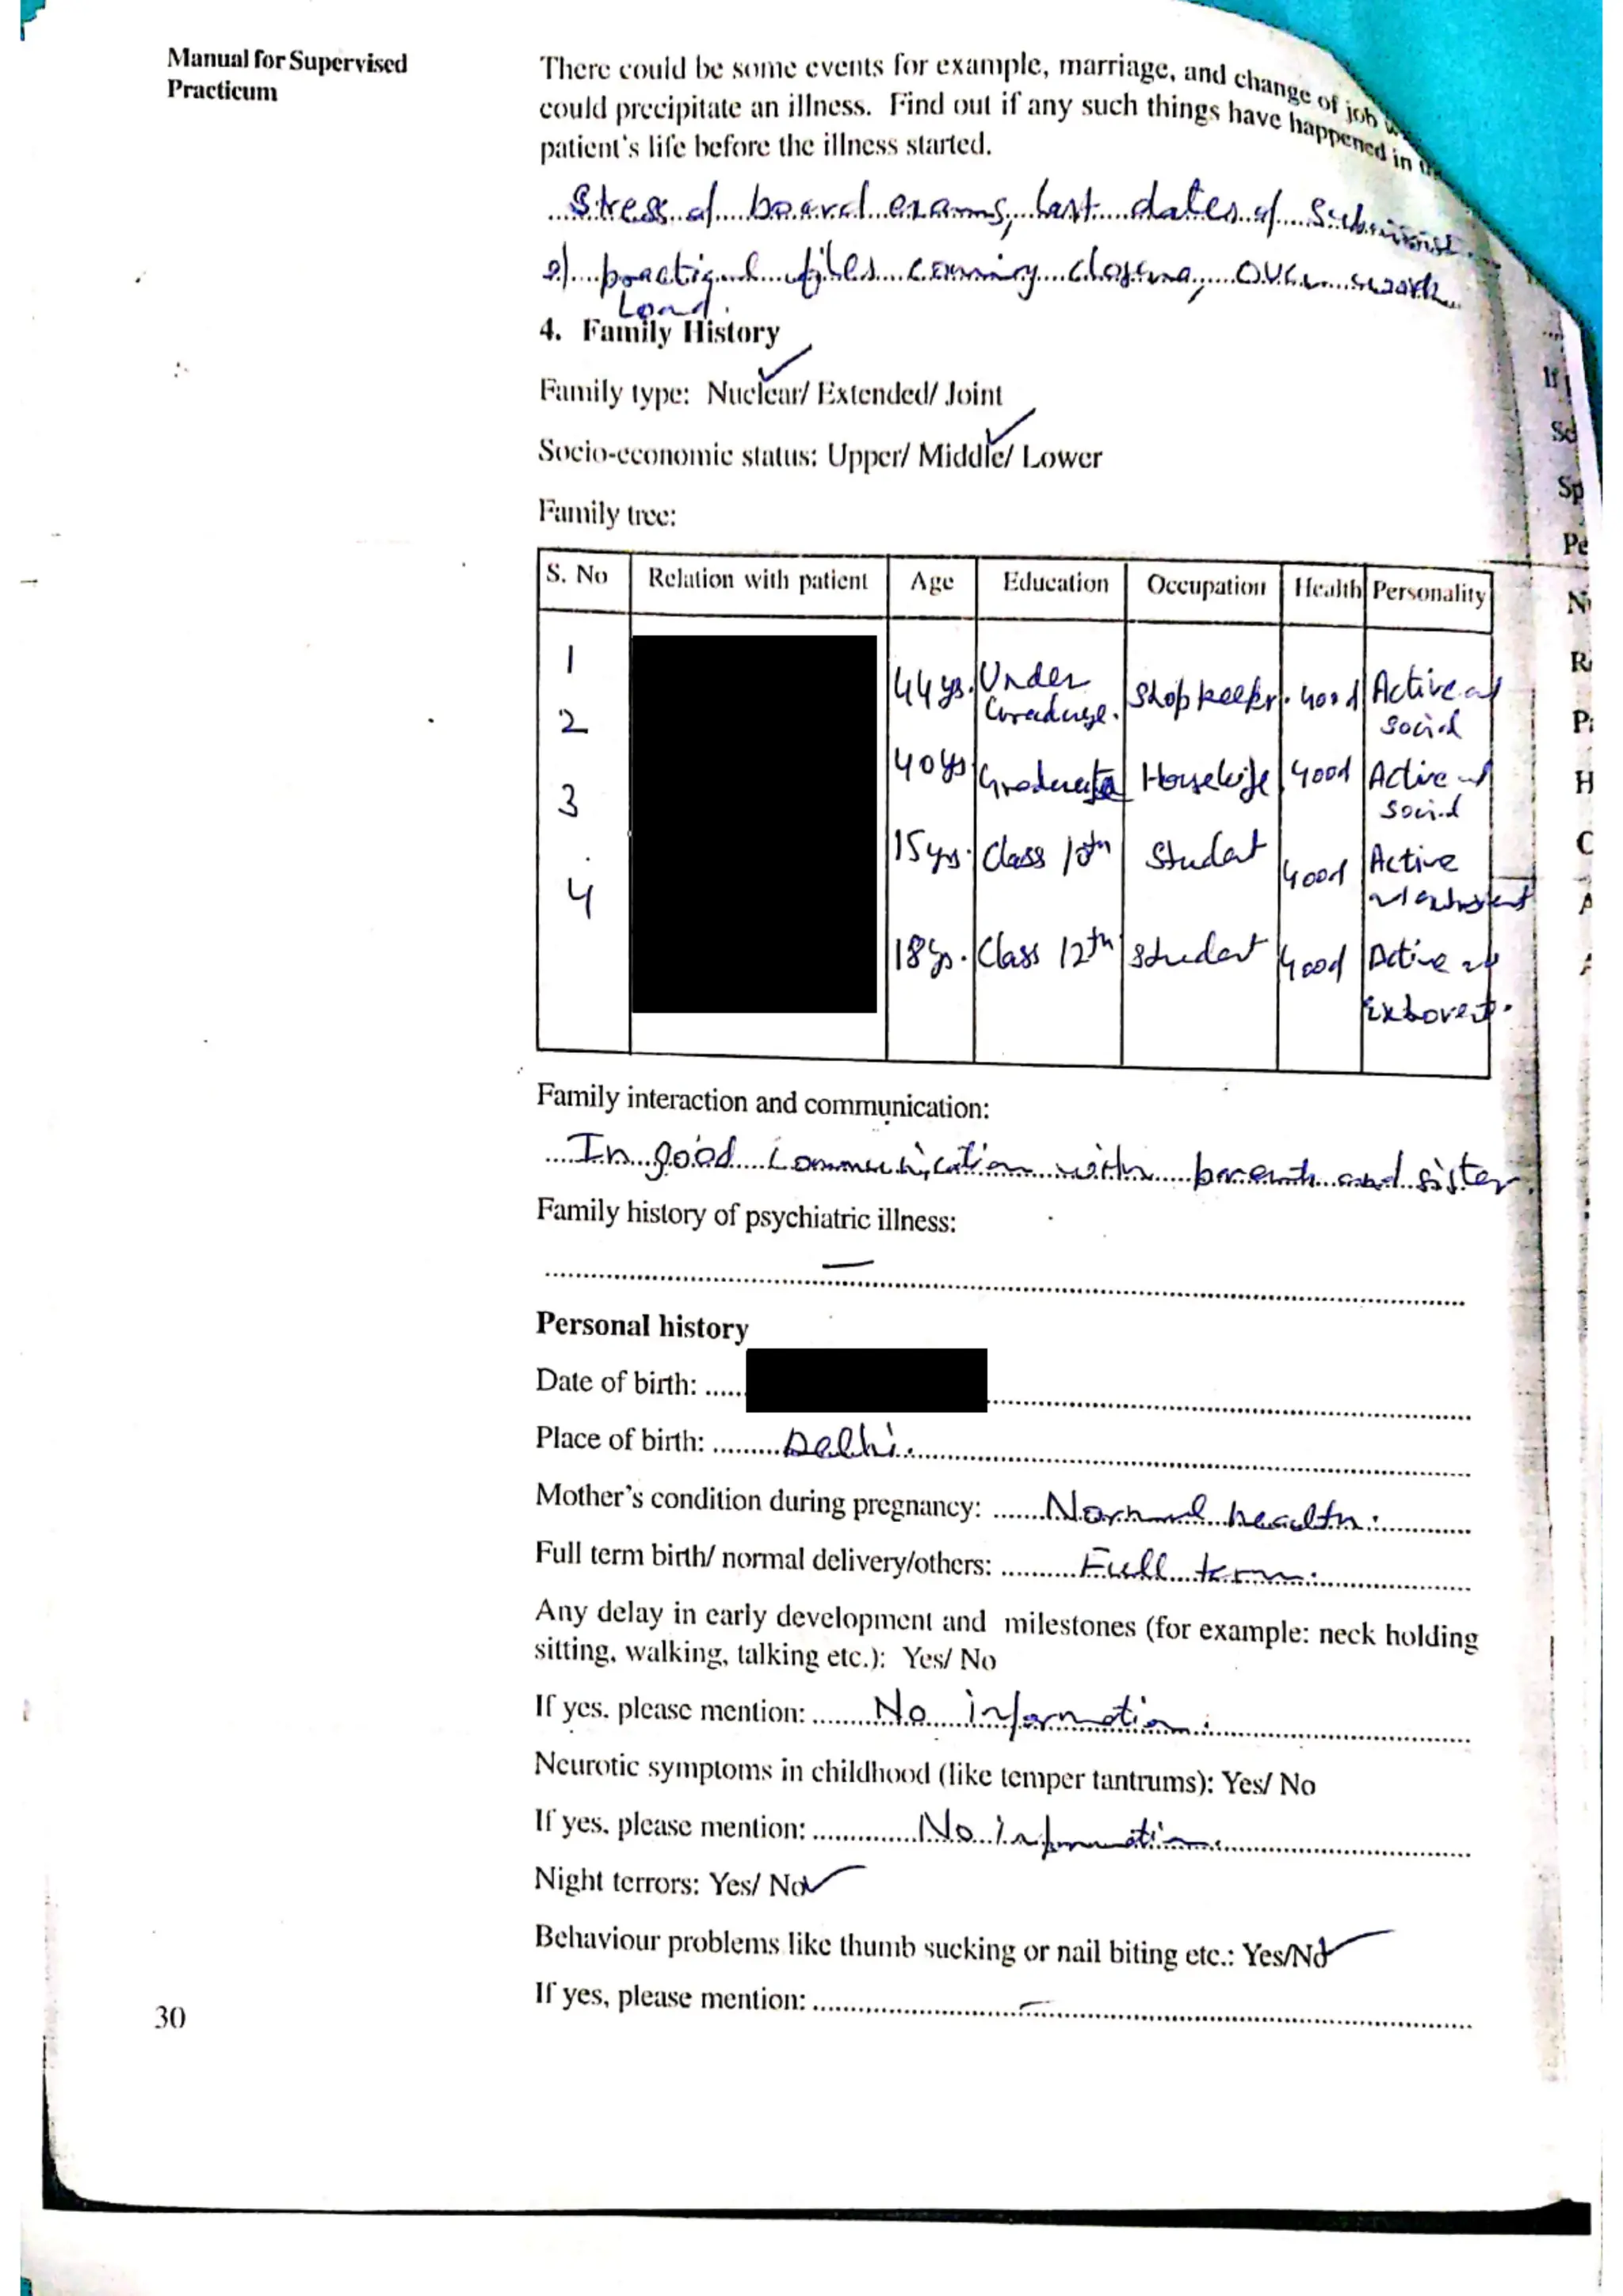 Manual for Supervised
Practicum
There could be some events for example, marriage, and change of job
could precipitate an illness. Find out if any such things have happened in
patient's life before the illness started.
Stress of board exams, last dates of
of practical files coming closure, over work
Load.
4. Family History
Family type: Nuclear/ Extended/ Joint
Socio-economic status: Upper/ Middle/ Lower
Family tree:
S. No Relation with patient Age Education Occupation Health Personality
1 44 ys. Under Shopkeeper. Good Active and
Graduage. social
2 40 ys Graduate Housewife Good Active and
social
3 15 ys. Class 10th Student Good Active
and
4 18 ys. Class 12th Student Good Active and
extrovert.
Family interaction and communication:
In good communication with parents and sister.
Family history of psychiatric illness:
—
Personal history
Date of birth:
Place of birth: Delhi.
Mother's condition during pregnancy: Normal health.
Full term birth/ normal delivery/others: Full term.
Any delay in early development and milestones (for example: neck holding
sitting, walking, talking etc.): Yes/ No
If yes, please mention: No information.
Neurotic symptoms in childhood (like temper tantrums): Yes/ No
If yes, please mention: No information.
Night terrors: Yes/ No
Behaviour problems like thumb sucking or nail biting etc.: Yes/No
If yes, please mention: —
30
If
Sp
Pe